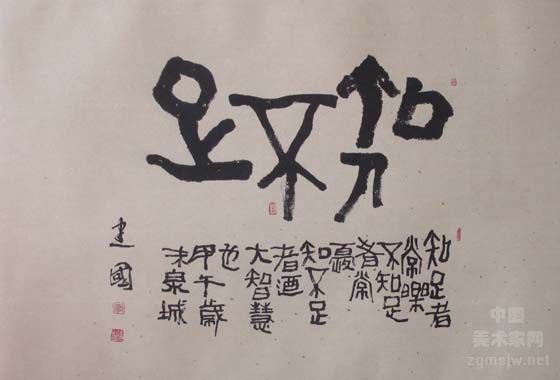 知不足
知足者
常樂
不知足
者常
憂
知不足
者迺
大智慧
也
甲午歲
末泉城
建國
中国
美术家网
zgmsjw.net